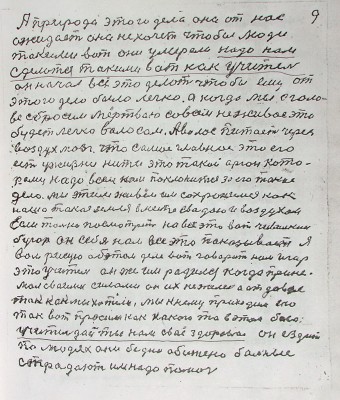 9
А природа этого дела она от нас
ожидает она нехочет чтобы люди
такеми вот они умерали надо нам
сделатся такими вот как учител
он начал все это делат чтобы ему от
этого дело было легко. а когда мы с голо
ве сбросем мертваю совсем неживое это
будет легко волосам. А волос питает через
воздух мозг. что самое главное это его
ест ужизни нити это такой орган кото-
рему надо всем нам поклонится за его такое
дело. мы этим живём им сохроняемся как
наша такая земля вместе сводою и воздухом
Если толко посмотрет на все это вот чевилкин
бугор он себя нам все это показывает Я
вам рисую об этом деле вот говорит нам
это учител он же им родился когда прине-
мал своими силами он их нежелел от давал
так как мы хотели, мы к нему приходим его
так вот просим как какого то в этом бога:
учител дай ты нам своё здоровье он ездит
по людях они бедно обижено больные
страдают им надо помоч